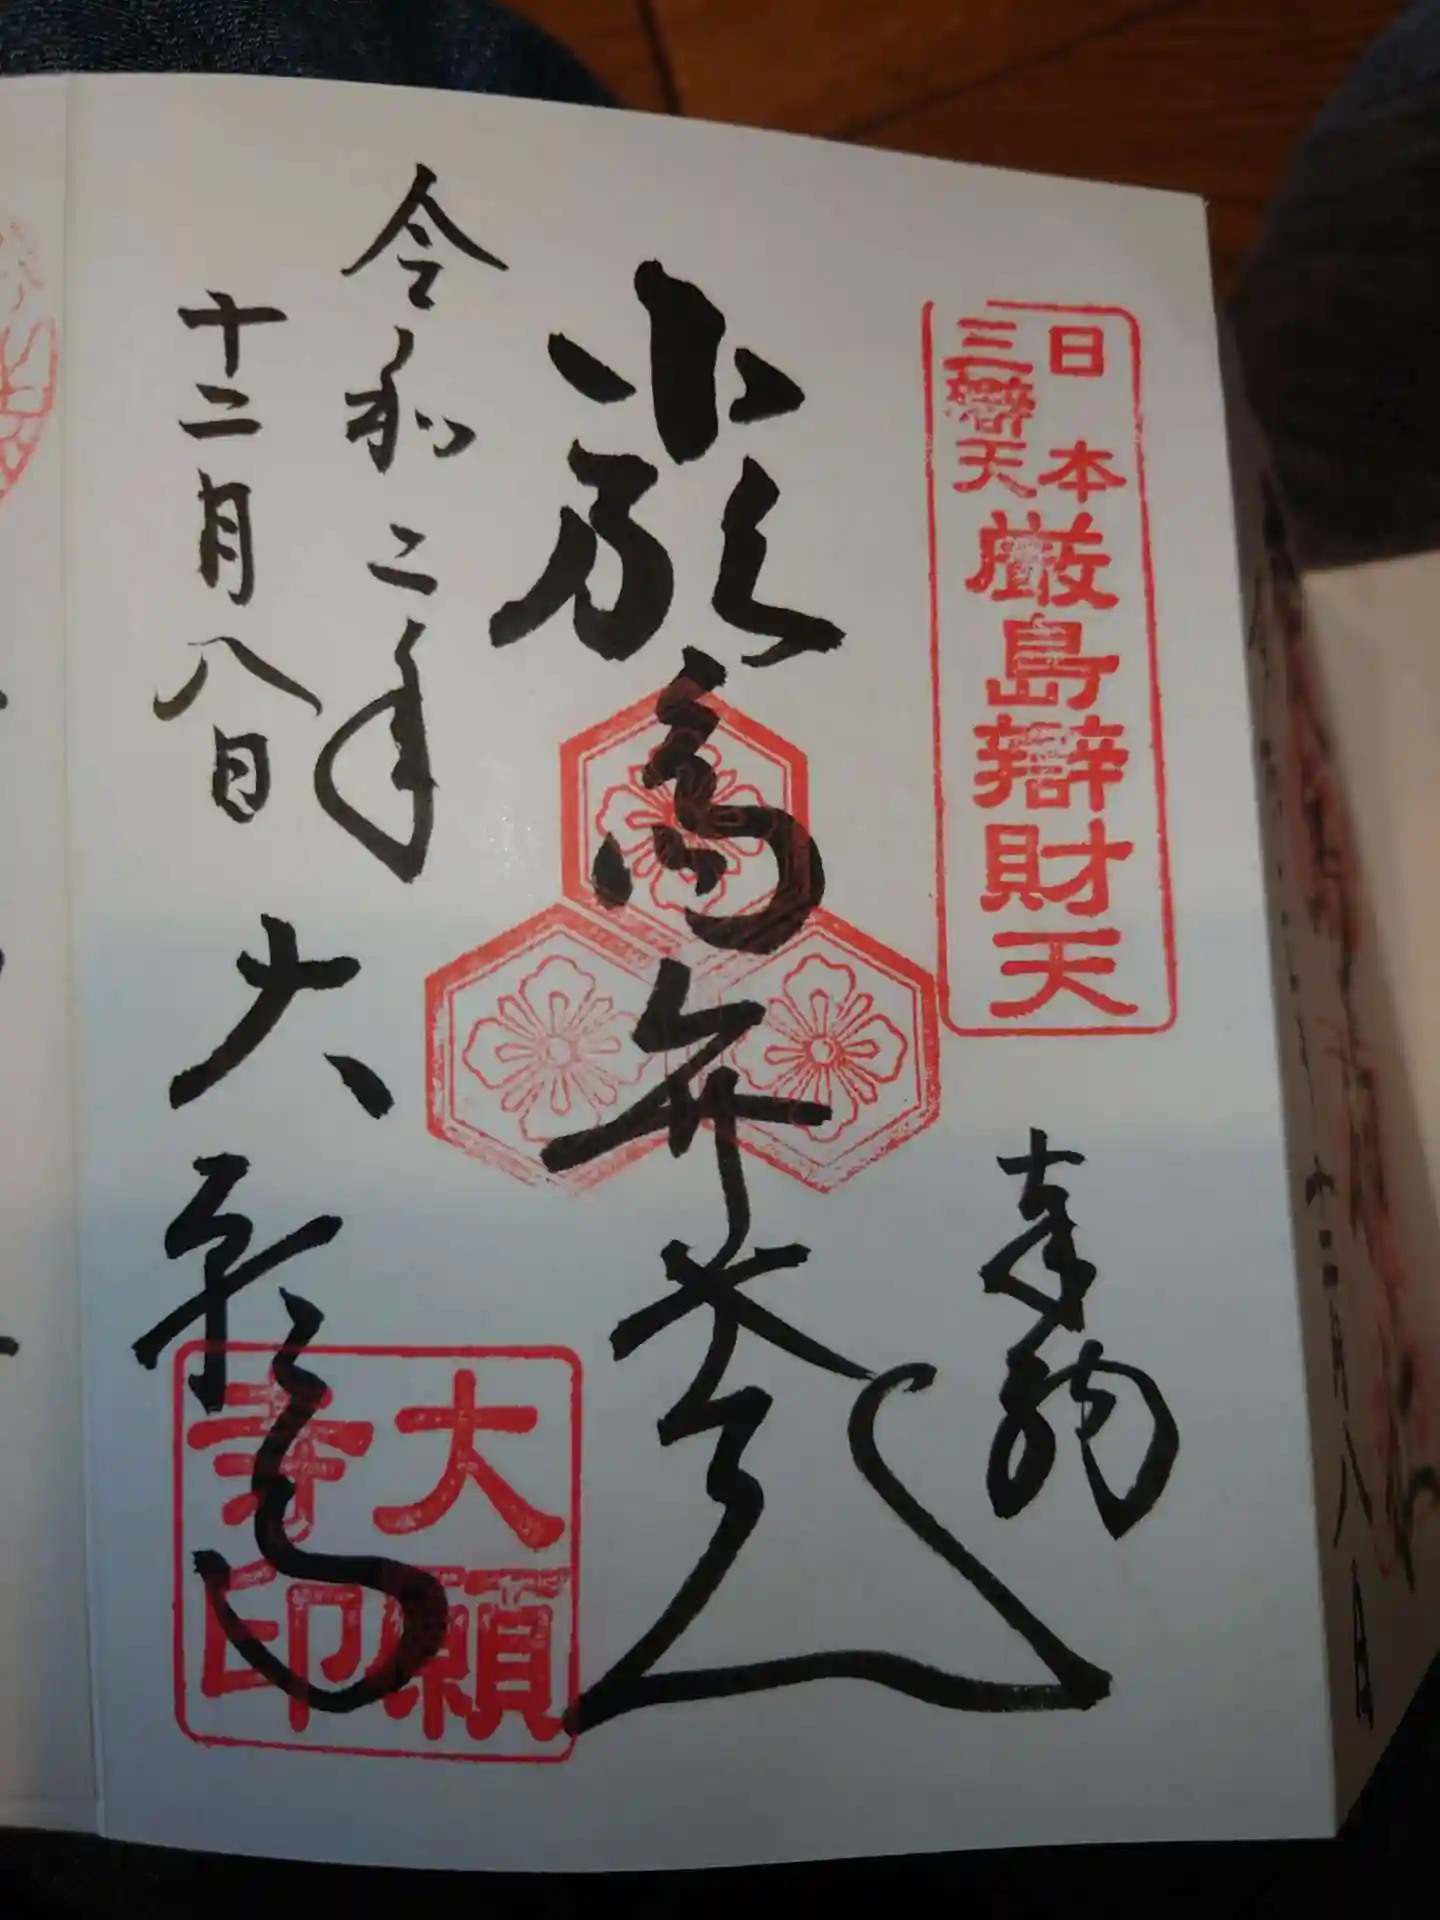 日本
三辯天
厳島辯財天
奉納
厳島弁才天
令和二年
十二月八日
大願寺
大願
寺印